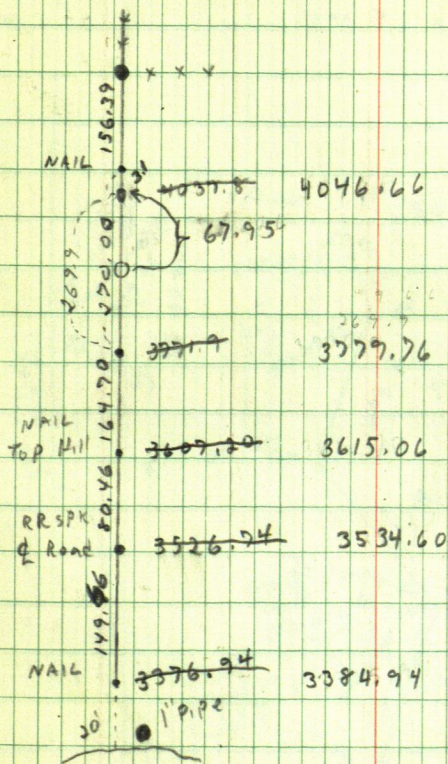 x
x
x x x
156.39
NAIL
3.1
4037.8 4046.66
67.95
270.00
269.9
269.9
3771.9 3779.76
164.70
NAIL
Top Hill
3607.20 3615.06
80.46
RR SPK
℄ Road
3526.74 3534.60
NAIL
3376.94 3384.94
20'
1" pipe